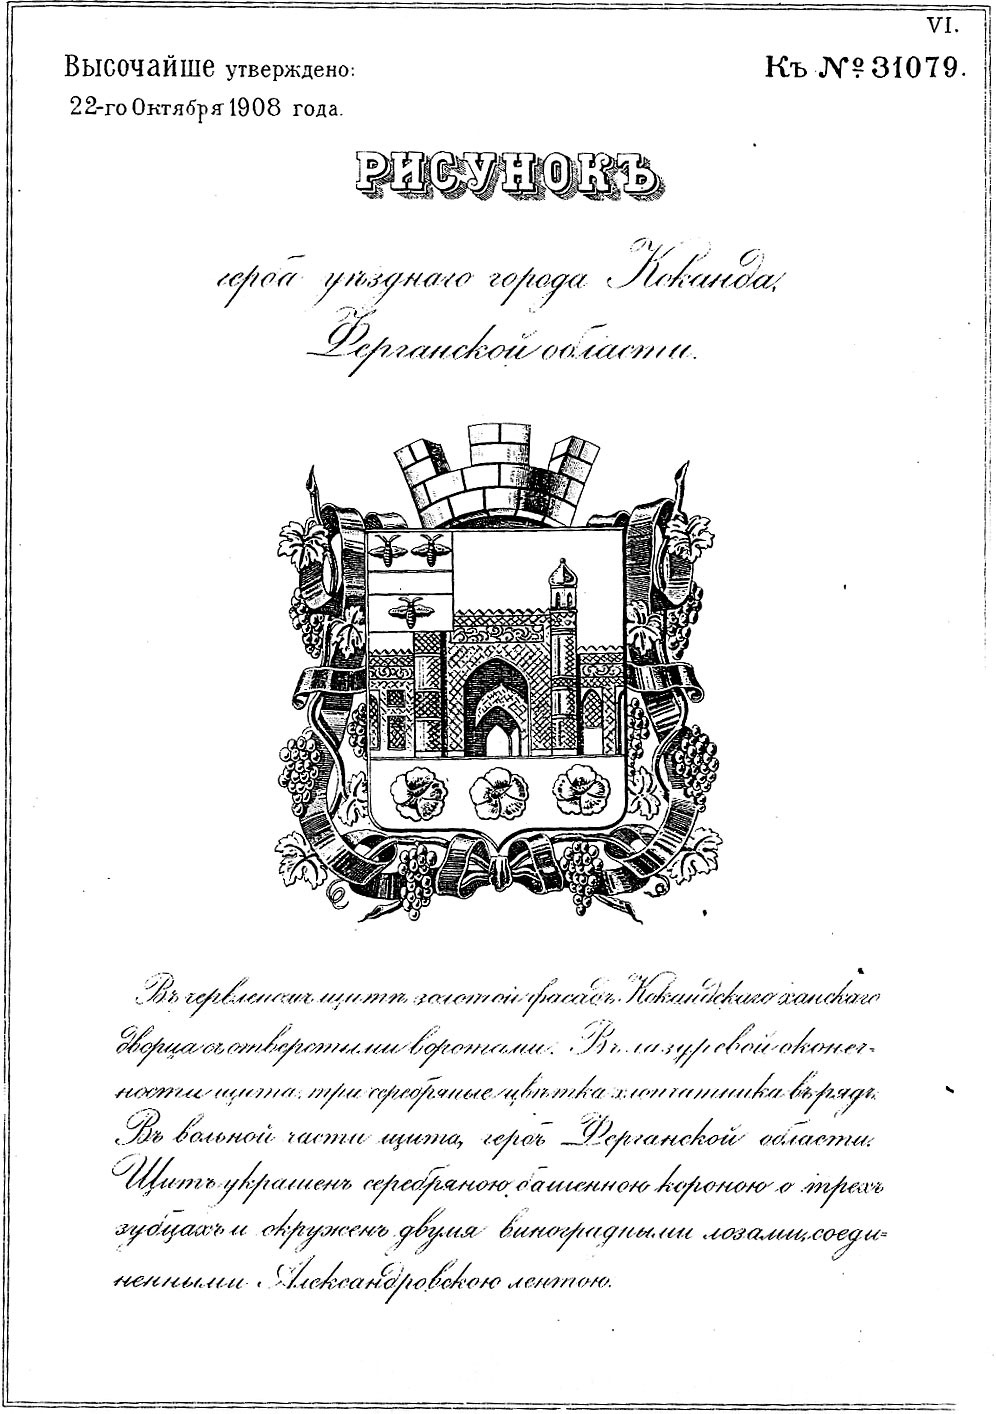 VI.
Высочайше утверждено:
Къ № 31079.
22-го Октября 1908 года.
РИСУНОКЪ
герба уѣзднаго города Коканда,
Ферганской области.
Въ червленомъ щитѣ золотой фасадъ Кокандскаго ханскаго
дворца съ отверстыми воротами. Въ лазуревой оконеч-
ности щита три серебряные цвѣтка хлопчатника въ рядъ.
Въ вольной части щита, гербъ Ферганской области.
Щитъ украшенъ серебряною башенною короною о трехъ
зубцахъ и окруженъ двумя виноградными лозами, соеди-
ненными Александровскою лентою.